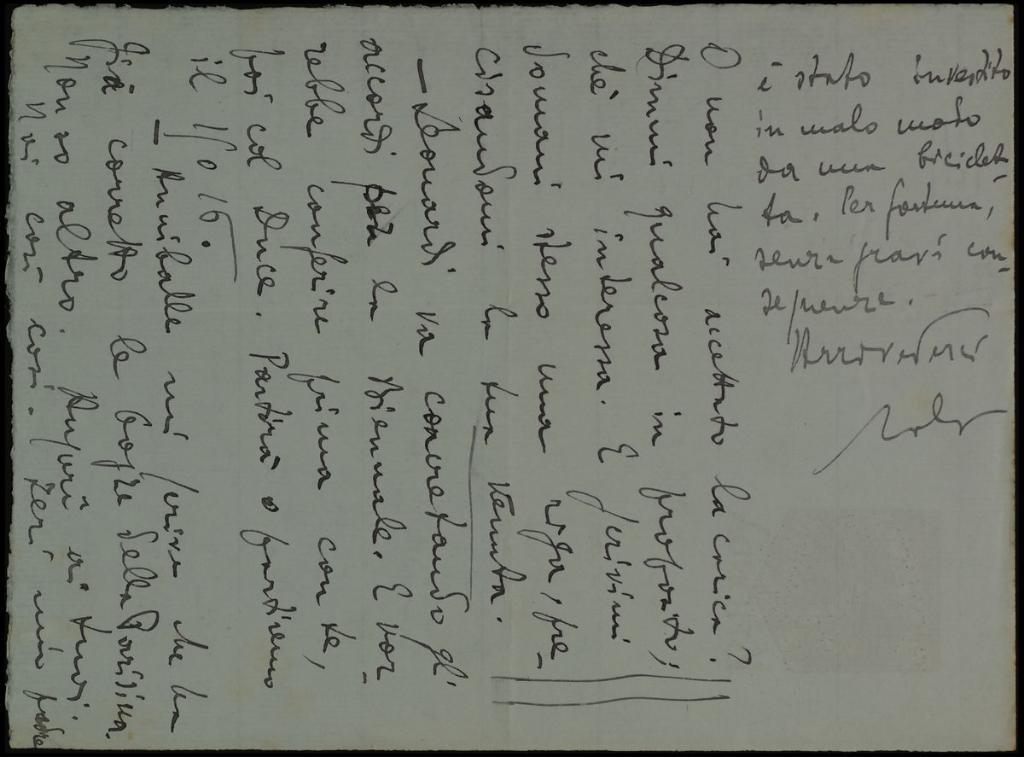 O non hai accettato la carica?
Dimmi qualcosa in proposito;
ché mi interessa. E scrivimi
domani stesso una riga, pre-
cisandomi la tua venuta.
— Leonardi va concretando gl'
accordi per la Biennale. E vor-
rebbe conferire prima con te,
poi col Duce. Partirà o partiremo
il 15 o 16.
— Annibale mi scrive che ha
già corretto le bozze della Parisina.
Non so altro. Auguri ai tuoi.
Noi così così. Ieri mio padre
è stato investito
in malo modo
da una biciclet-
ta. Per fortuna,
senza gravi con-
seguenze.
Arrivederci